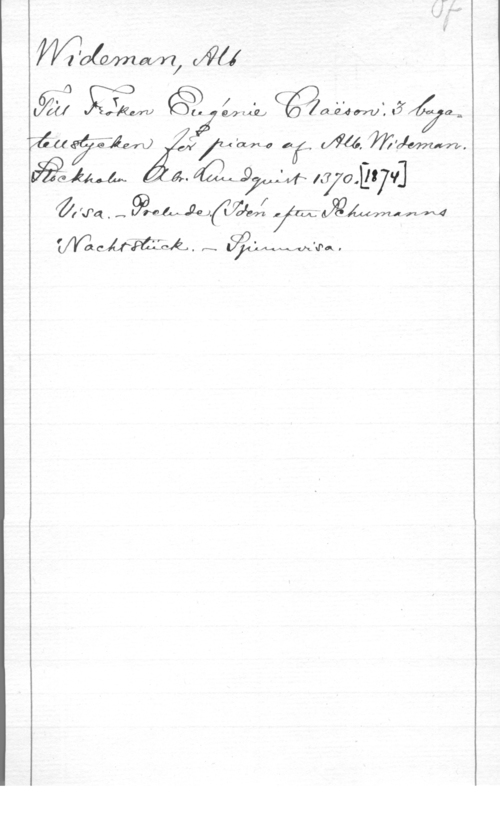 Wideman, Alb
Till Fröken Eugénie Claëson: 3 baga-
tellstycken för piano af Alb. Wideman.
Stockholm Abr. Lundquist 1370. [1874]
Visa. - Prelude (Idén efter Schumanns
Nachtstück. - Spinnvisa.